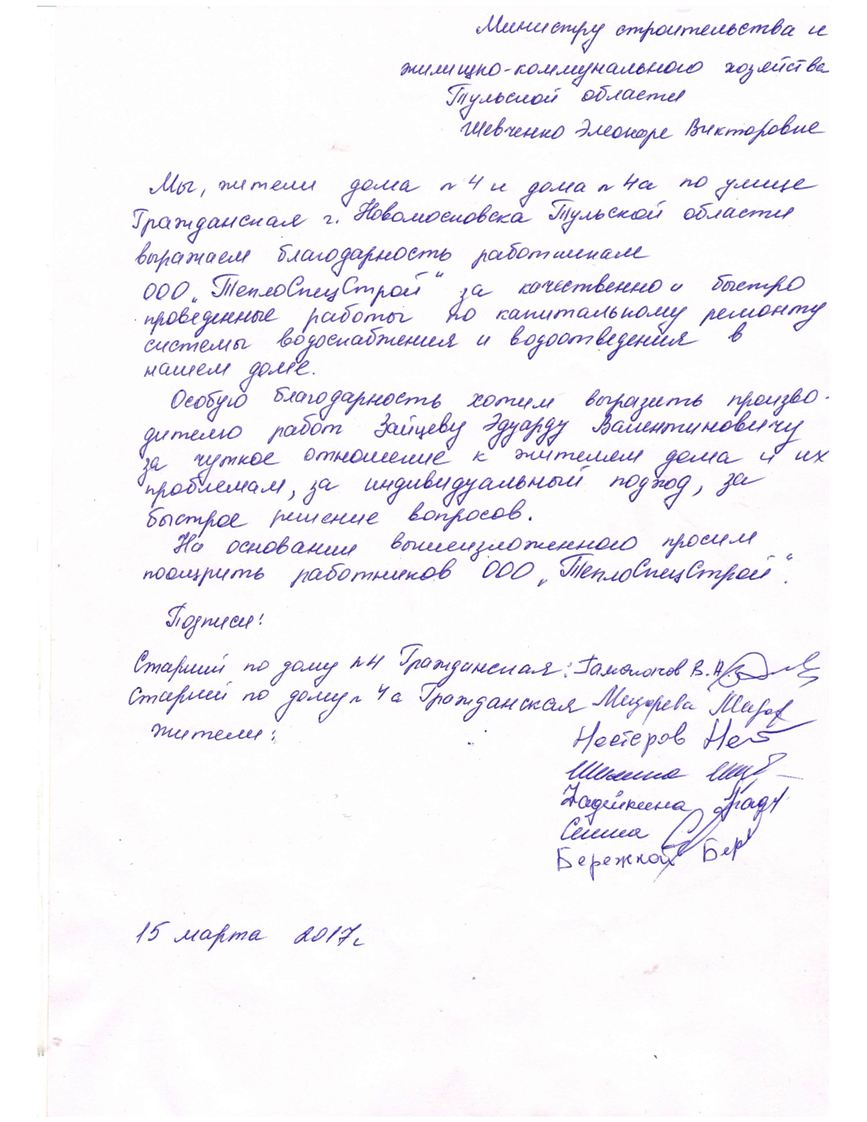 Министру строительства и
жилищно-коммунального хозяйства
Тульской области
Шевченко Элеоноре Викторовне
Мы, жители дома n 4 и дома n 4а по улице
Гражданская г. Новомосковска Тульской области
выражаем благодарность работникам
ООО „ТеплоСпецСтрой“ за качественно и быстро
проведенные работы по капитальному ремонту
системы водоснабжения и водоотведения в
нашем доме.
Особую благодарность хотим выразить произво-
дителю работ Зайцеву Эдуарду Валентиновичу
за чуткое отношение к жителям дома и их
проблемам, за индивидуальный подход, за
быстрое решение вопросов.
На основании вышеизложенного просим
поощрить работников ООО „ТеплоСпецСтрой“.
Подписи:
Старший по дому n 4 Гражданская: В.А.
Старший по дому n 4а Гражданская
жители:
Нестеров Нест
Бережной Бер
15 марта 2017г